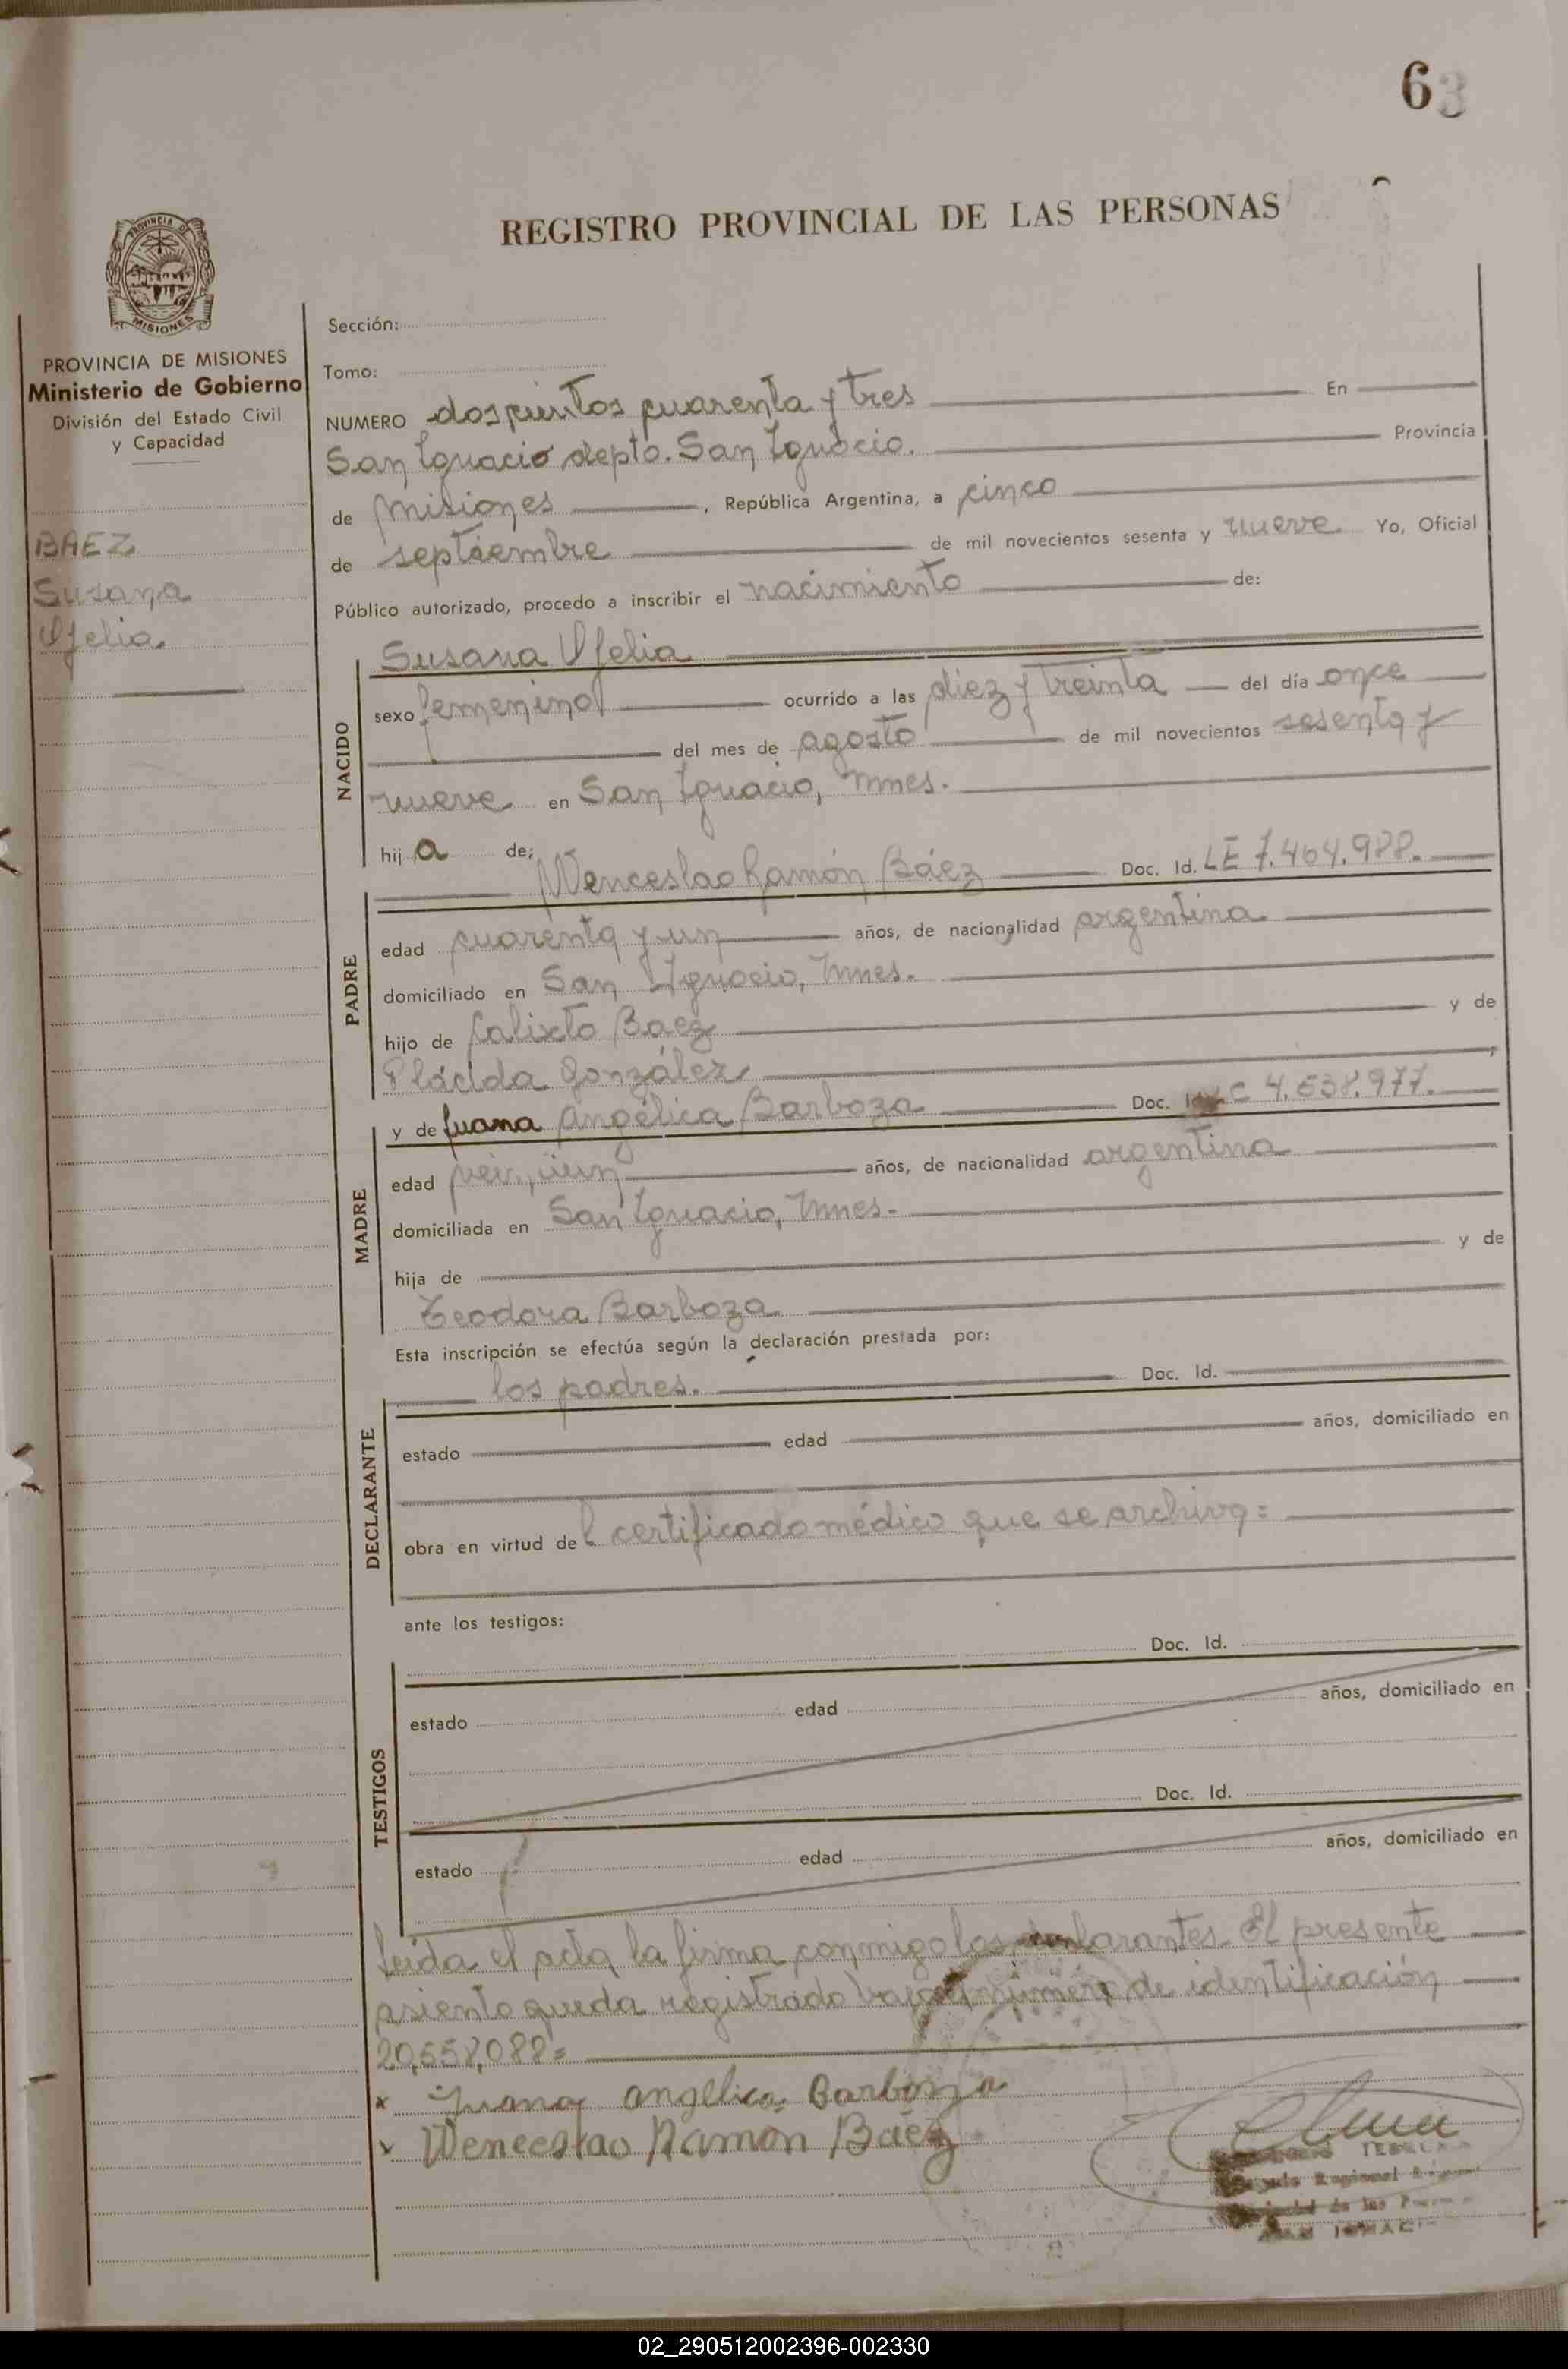 63
REGISTRO PROVINCIAL DE LAS PERSONAS
PROVINCIA DE MISIONES
MISIONES
PROVINCIA DE MISIONES
Ministerio de Gobierno
División del Estado Civil
y Capacidad
BAEZ
Susana
Ofelia.
Sección:
Tomo:
NUMERO doscientos cuarenta y tres En
San Ignacio depto. San Ignacio. Provincia
de Misiones, República Argentina, a cinco
de septiembre de mil novecientos sesenta y nueve. Yo, Oficial
Público autorizado, procedo a inscribir el nacimiento de:
Susana Ofelia
NACIDO
sexo femenino ocurrido a las diez y treinta del día once
del mes de agosto de mil novecientos sesenta y
nueve en San Ignacio, Mnes.
hij a de;
Wenceslao Ramón Báez Doc. Id. LE 7.464.988.
PADRE
edad cuarenta y un años, de nacionalidad argentina
domiciliado en San Ignacio, Mnes.
hijo de Calixto Baez y de
Plácida González
y de Juana Angélica Barboza Doc. C 4.538.977.
MADRE
edad años, de nacionalidad argentina
domiciliada en San Ignacio, Mnes.
hija de y de
Teodora Barboza
Esta inscripción se efectúa según la declaración prestada por:
los padres. Doc. Id.
DECLARANTE
estado edad años, domiciliado en
obra en virtud del certificado médico que se archiva=
ante los testigos:
Doc. Id.
TESTIGOS
estado edad años, domiciliado en
Doc. Id.
estado edad años, domiciliado en
Leída el acta la firma conmigo los declarantes. El presente
asiento queda registrado bajo el número de identificación
20,558,088=
x Juana Angélica Barboza
x Wenceslao Ramon Báez
02_290512002396-002330